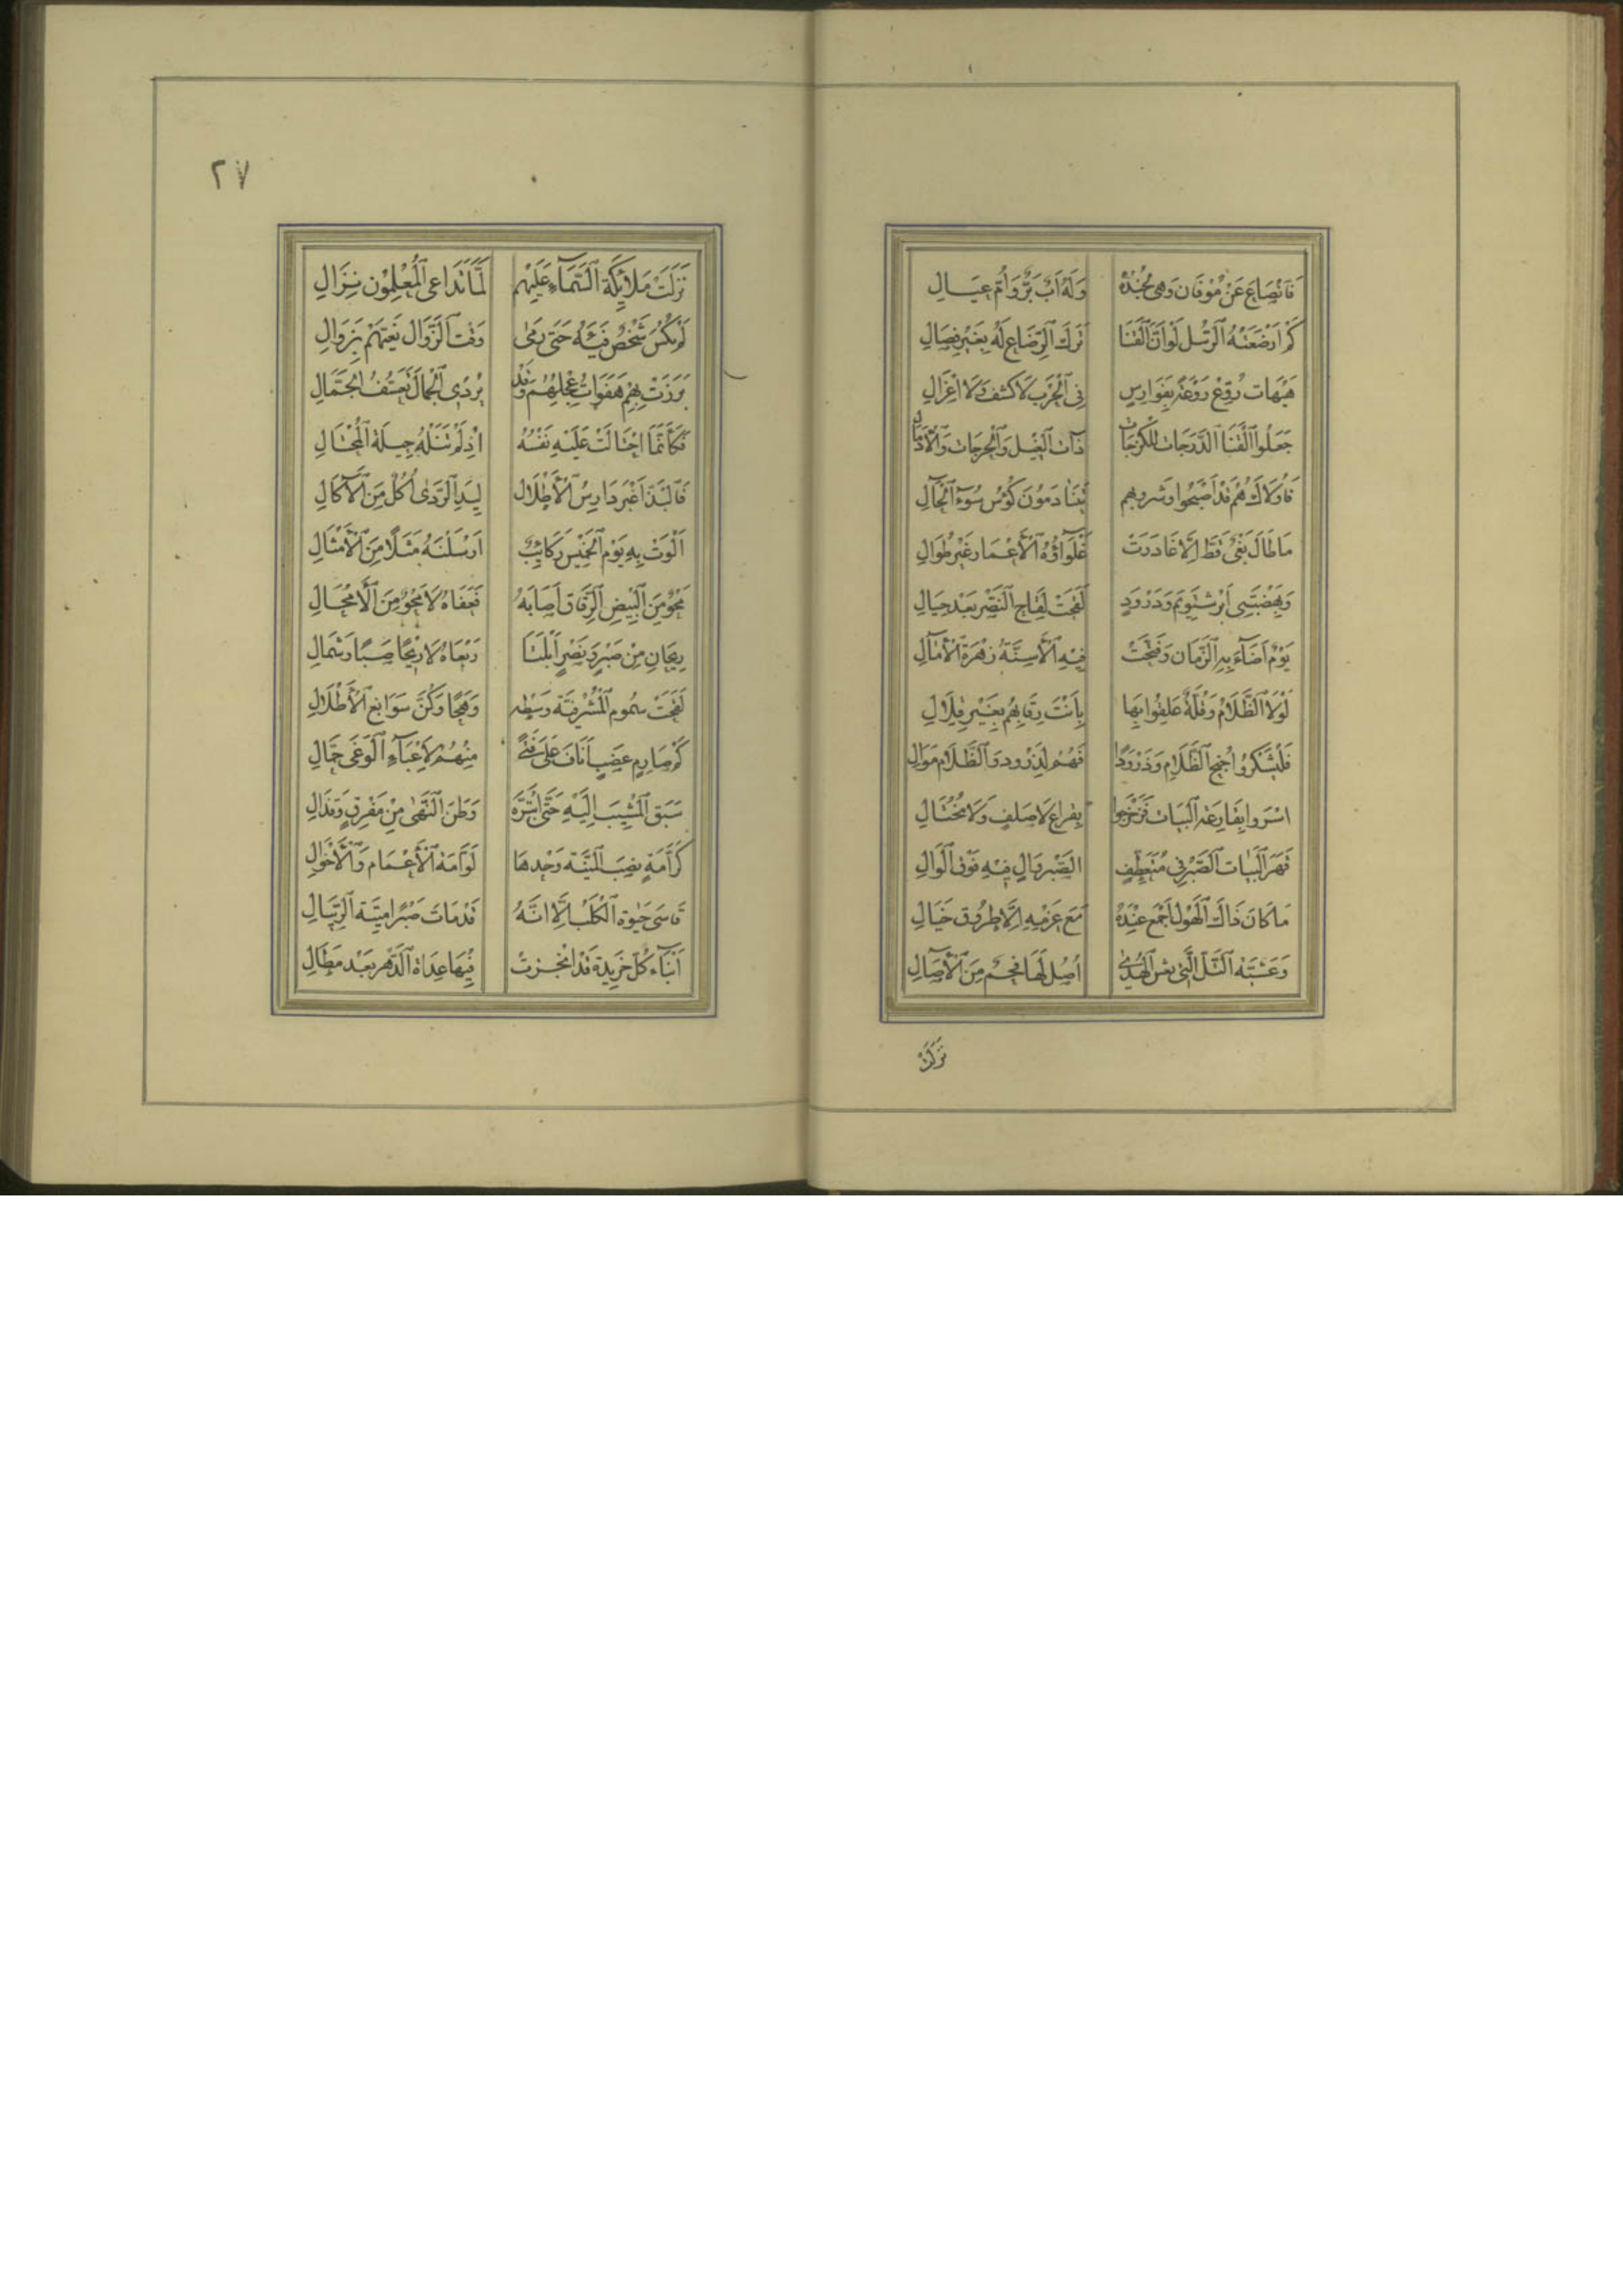 فَانْصَاعَ عَنْ مُوقَانَ وَهْيَ لِجُنْدِهِ وَلَهُ اَبٌ بَرٌّ وَاُمُّ عِيَالِ
كَمْ اَرْضَعَتْهُ الرِّسْلَ لَوْ اَنَّ الْقَنَا تَرَكَ الرَّضَاعَ لَهُ بِغَيْرِ فِصَالِ
هَيْهَاتَ رُوِّعَ رَوْعُهُ بِفَوَارِسٍ فِي الْحَرْبِ لَا كُشُفٍ وَلَا اَعْزَالِ
جَعَلُوا الْقَنَا الدَّرَجَاتِ لِلْكَذَجَاتِ ذَاتِ الْغِيلِ وَالْحَرَجَاتِ وَالْاَدْحَالِ
فَاُولَاكَ هُمْ قَدْ اَصْبَحُوا وَشُرُوبُهُمْ يَتَنَادَمُونَ كُؤُسَ سُوءِ الْحَالِ
مَا طَالَ بَغْيٌ قَطُّ اِلَّا غَادَرَتْ غُلَوَاؤُهُ الْاَعْمَارَ غَيْرَ طُوَالِ
وَبِهَضْبَتَىْ اَبْرَشْتَوِيمَ وَدَرْوَدٍ لَقِحَتْ لِقَاحُ النَّصْرِ بَعْدَ حِيَالِ
يَوْمٌ اَضَاءَ بِهِ الزَّمَانُ وَفَتَّحَتْ فِيهِ الْاَسِنَّةُ زَهْرَةَ الْآمَالِ
لَوْلَا الظَّلَامُ وَقُلَّةٌ عَلِقُوا بِهَا بَاتَتْ رِقَابُهُمْ بِغَيْرِ قِلَالِ
فَلْيَشْكُرُوا جُنْحَ الظَّلَامِ وَدَرْوَدًا فَهُمُ لِدَرْوَدَ وَالظَّلَامِ مَوَالِ
اَسْرَوْا بِقَارِعَةِ الْبَيَاتِ فَزَحْزَحُوا بِقِرَاعِ لَا صَلِفٍ وَلَا مُخْتَالِ
قَهَرَ الْبَيَاتَ الصَّبْرُ فِي مُتَعَطِّفٍ الصَّبْرُ وَالٍ فِيهِ فَوْقَ الْوَالِ
مَا كَانَ ذَاكَ الْهَوْلُ اَجْمَعُ عِنْدَهُ مَعَ عَزْمِهِ اِلَّا طُرُوقَ خَيَالِ
وَعَشِيَّةُ التَّلِّ الَّتِي نَعَشَ الْهُدَى اُصُلٌ لَهَا فَخْمٌ مِنَ الْآصَالِ
نَزَلَتْ
٢٧
نَزَلَتْ مَلَائِكَةُ السَّمَاءِ عَلَيْهِمِ لَمَّا تَدَاعَى الْمُعْلِمُونَ نِزَالِ
لَمْ يُكْسَ شَخْصٌ فَيْئَهُ حَتَّى رَمَى وَقْتُ الزَّوَالِ نَعِيمَهُمْ بِزَوَالِ
بَرَزَتْ بِهِمْ هَفَوَاتُ عِجْلِهِمُ وَقَدْ يُرْدِي الْجِمَالَ تَعَسُّفُ الْجَمَّالِ
فَكَاَنَّمَا احْتَالَتْ عَلَيْهِ نَفْسُهُ اِذْ لَمْ تَنَلْهُ حِيلَةُ الْمُحْتَالِ
فَالْبَذُّ اَغْبَرُ دَارِسُ الْاَطْلَالِ لِيَدِ الرَّدَى اُكُلٌ مِنَ الْآكَالِ
اَلْوَتْ بِهِ يَوْمَ الْخَمِيسِ كَتَائِبٌ اَرْسَلْنَهُ مَثَلًا مِنَ الْاَمْثَالِ
مَحْوٌ مِنَ الْبِيضِ الرِّقَاقِ اَصَابَهُ فَعَفَاهُ لَا مَحْوٌ مِنَ الْاَمْحَالِ
رِيحَانِ مِنْ صَبْرٍ وَنَصْرٍ اَبْلَتَا رَبْعَاهُ لَا رِيحَا صَبًا وَشَمَالِ
لَفَحَتْ سَمُومُ الْمَشْرَفِيَّةِ وَسْطَهُ وَهَجًا وَكُنَّ سَوَابِغَ الْاَظْلَالِ
كَمْ صَارِمٍ عَضْبٍ اَنَافَ عَلَى فَتًى مِنْهُمْ لِاَعْبَاءِ الْوَغَى حَمَّالِ
سَبَقَ الْمَشِيبَ اِلَيْهِ حَتَّى ابْتَزَّهُ وَطَنَ النُّهَى مِنْ مَفْرِقٍ وَقَذَالِ
كَرَّامَةٍ نَصْبَ الْمَنِيَّةِ وَحْدَهَا لَوَّامَةِ الْاَعْمَامِ وَالْاَخْوَالِ
قَاسَى حَيٰوةَ الْكَلْبِ اِلَّا اَنَّهُ قَدْ مَاتَ صَبْرًا مِيتَةَ الرِّيبَالِ
اَبْنَاءُ كُلِّ خَرِيدَةٍ قَدْ اَنْجَزَتْ فِيهَا عِدَاةُ الدَّهْرِ بَعْدَ مَطَالِ